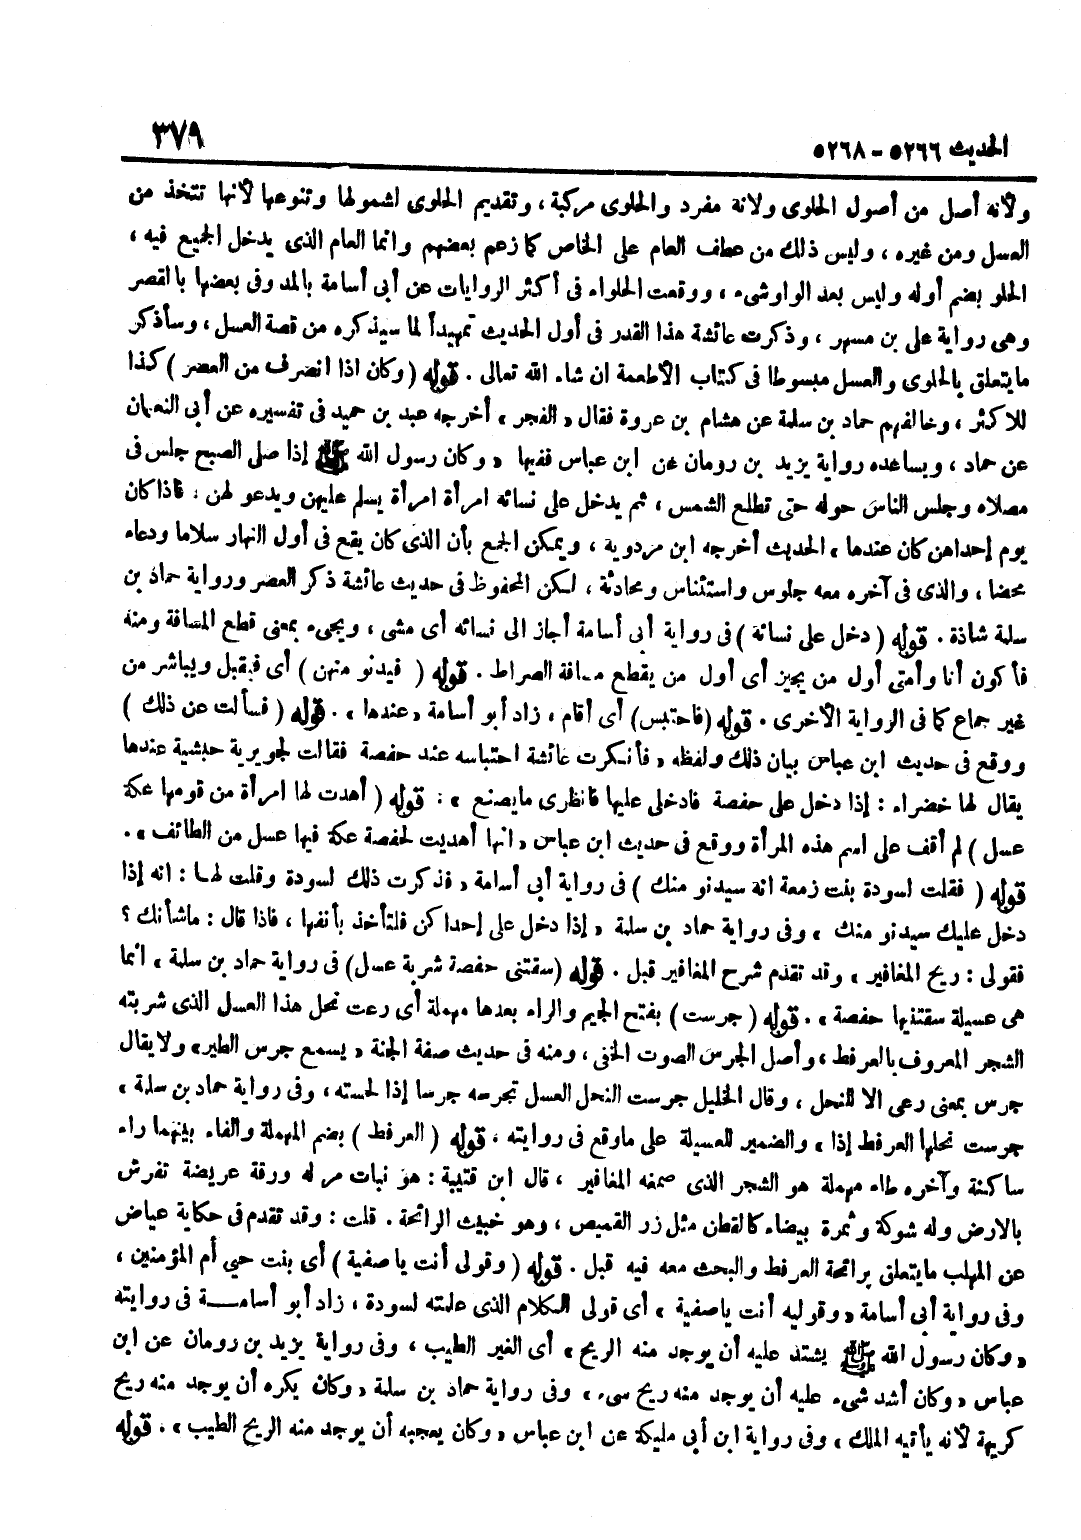 الحديث ٥٢٦٦ – ٥٢٦٨ ٣٧٩
ولأنه أصل من أصول الحلوى ولانة مفرد والحلوى مركبة ، وتقديم الحلوى لشمولها وتنوعها لأنها تتخذ من
العسل ومن غيره ، وليس ذلك من عطف العام على الخاص كما زعم بعضهم وانما العام الذى يدخل الجميع فيه ،
الحلو بضم أوله وليس بعد الواو شىء ، ووقعت الحلواء فى أكثر الروايات عن أبى أسامة بالمد وفى بعضها بالقصر
وهى رواية على بن مسهر ، وذكرت عائشة هذا القدر فى أول الحديث تمهيداً لما سيذكره من قصة العسل ، وسأذكر
ما يتعلق بالحلوى والعسل مبسوطا فى كتاب الأطعمة ان شاء الله تعالى . قوله ( وكان اذا انصرف من العصر ) كذا
للاكثر ، وخالفهم حماد بن سلمة عن هشام بن عروة فقال « الفجر » أخرجه عبد بن حميد فى تفسيره عن أبى النعمان
عن حماد ، ويساعده رواية يزيد بن رومان عن ابن عباس ففيها « وكان رسول الله ﷺ إذا صلى الصبح جلس فى
مصلاه وجلس الناس حوله حتى تطلع الشمس ، ثم يدخل على نسائه امرأة امرأة يسلم عليهن ويدعو لهن ، فاذا كان
يوم إحداهن كان عندها » الحديث أخرجه ابن مردوية ، ويمكن الجمع بأن الذى كان يقع فى أول النهار سلاما ودعاء
محضا ، والذى فى آخره معه جلوس واستئناس ومحادثة ، لكن المحفوظ فى حديث عائشة ذكر العصر ورواية حماد بن
سلمة شاذة . قوله ( دخل على نسائة ) فى رواية أبى أسامة أجاز الى نسائه أى مشى ، ويجىء بمعنى قطع المسافة ومنه
فأكون أنا وأمتى أول من يجيز أى أول من يقطع مسافة الصراط . قوله ( فيدنو منهن ) أى فيقبل ويباشر من
غير جماع كما فى الرواية الأخرى . قوله (فاحتبس) أى أقام ، زاد أبو أسامة « عندها » . قوله ( فسألت عن ذلك )
ووقع فى حديث ابن عباس بيان ذلك ولفظه « فأنكرت عائشة احتباسه عند حفصة فقالت لجويرية حبشية عندها
يقال لها خضراء : إذا دخل على حفصة فادخلى عليها فانظرى مايصنع » . قوله ( أهدت لها امرأة من قومها عكة
عسل ) لم أقف على اسم هذه المرأة ووقع فى حديث ابن عباس « انها أهديت لحفصة عكة فيها عسل من الطائف » .
قوله ( فقلت لسودة بنت زمعة انه سيدنو منك ) فى رواية أبى أسامة « فذكرت ذلك لسودة وقلت لها : انه إذا
دخل عليك سيدنو منك » وفى رواية حماد بن سلمة « إذا دخل على إحداكن فلتأخذ بأنفها ، فاذا قال : ماشأنك ؟
فقولى : ريح المغافير » وقد تقدم شرح المغافير قبل . قوله (سقتنى حفصة شربة عسل) فى رواية حماد بن سلمة « انما
هى عسيلة سقتنيها حفصة » . قوله ( جرست ) بفتح الجيم والراء بعدها مهملة أى رعت نحل هذا العسل الذى شربته
الشجر المعروف بالعرفط ، وأصل الجرس الصوت الخفى ، ومنه فى حديث صفة الجنة « يسمع جرس الطير » ولا يقال
جرس بمعنى رعى الا للنحل ، وقال الخليل جرست النحل العسل تجرسه جرسا إذا لحسته ، وفى رواية حماد بن سلمة «
جرست نحلها العرفط إذا » والضمير للعسيلة على ماوقع فى روايته . قوله ( العرفط ) بضم المهملة والفاء بينهما راء
ساكنة وآخره طاء مهملة هو الشجر الذى صمغه المغافير ، قال ابن قتيبة : هو نبات مر له ورقة عريضة تفرش
بالارض وله شوكة وثمرة بيضاء كالقطن مثل زر القميص ، وهو خبيث الرائحة . قلت : وقد تقدم فى حكاية عياض
عن المهلب ما يتعلق برائحة العرفط والبحث معه فيه قبل . قوله ( وقولى أنت يا صفية ) أى بنت حيي أم المؤمنين ،
وفى رواية أبى أسامة « وقوليه أنت ياصفية » أى قولى الكلام الذى علمته لسودة ، زاد أبو أسامة فى روايته
« وكان رسول الله ﷺ يشتد عليه أن يوجد منه الريح » أى الغير الطيب ، وفى رواية يزيد بن رومان عن ابن
عباس « وكان أشد شىء عليه أن يوجد منه ريح سىء » وفى رواية حماد بن سلمة « وكان يكره أن يوجد منه ريح
كريهة لأنه يأتيه الملك » وفى رواية ابن أبى مليكة عن ابن عباس « وكان يعجبه أن يوجد منه الريح الطيب » . قوله